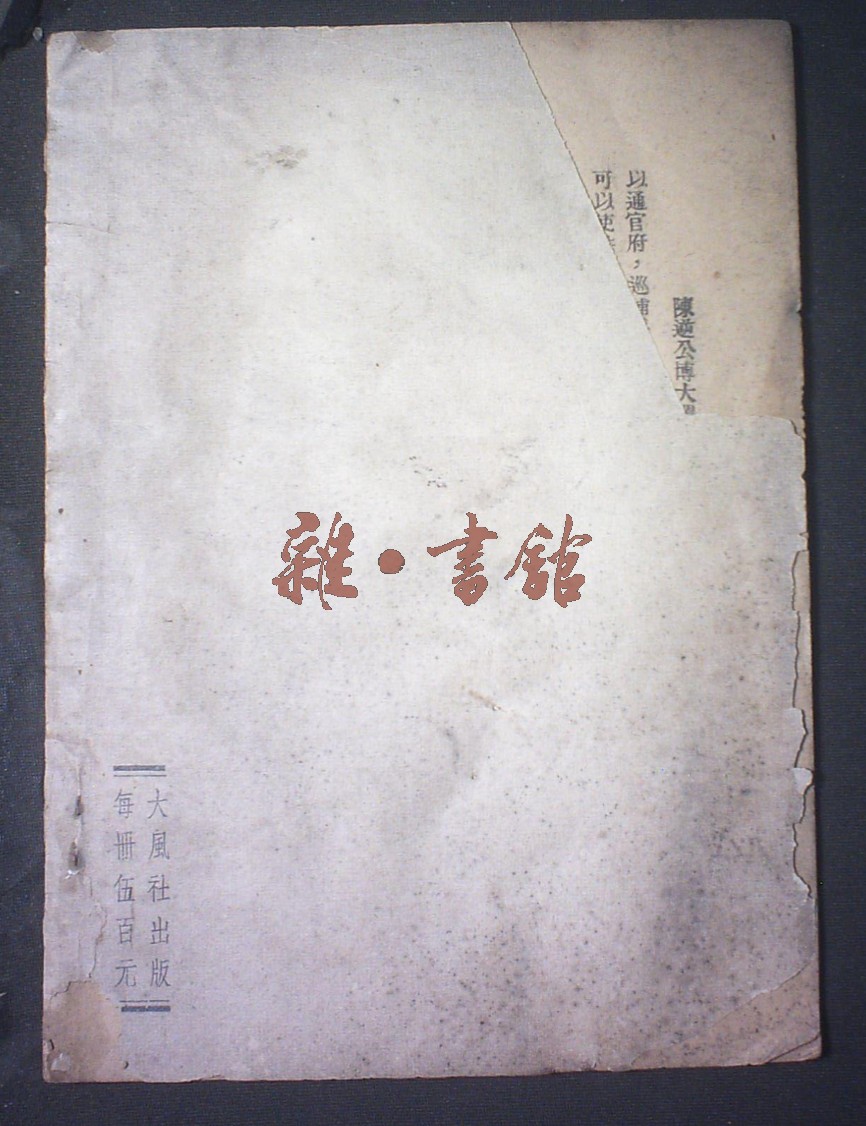 陳逆公博大
以通官府，巡捕
可以使
雜·書館
大風社出版
每冊伍百元